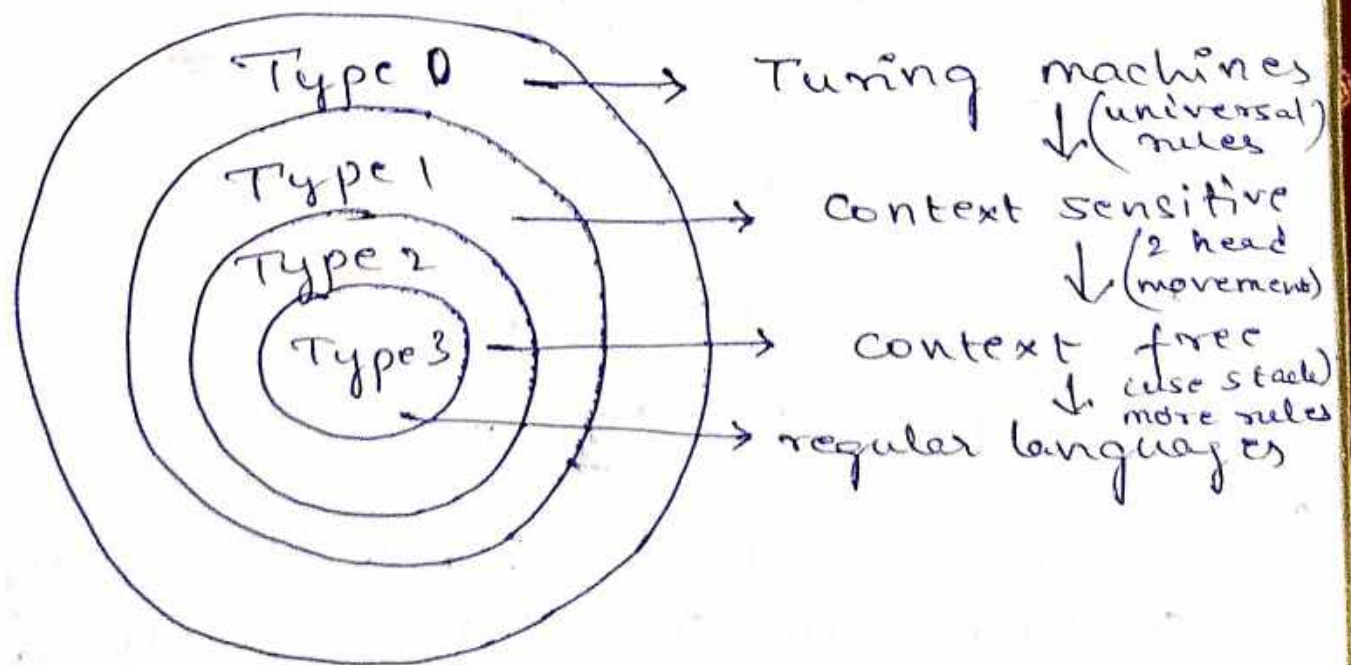 Type 0 → Turing machines
↓ (universal)
rules
Type 1 → Context sensitive
↓ (2 head
movement)
Type 2
Type 3 → context free
↓ (use stack)
more rules
→ regular languages